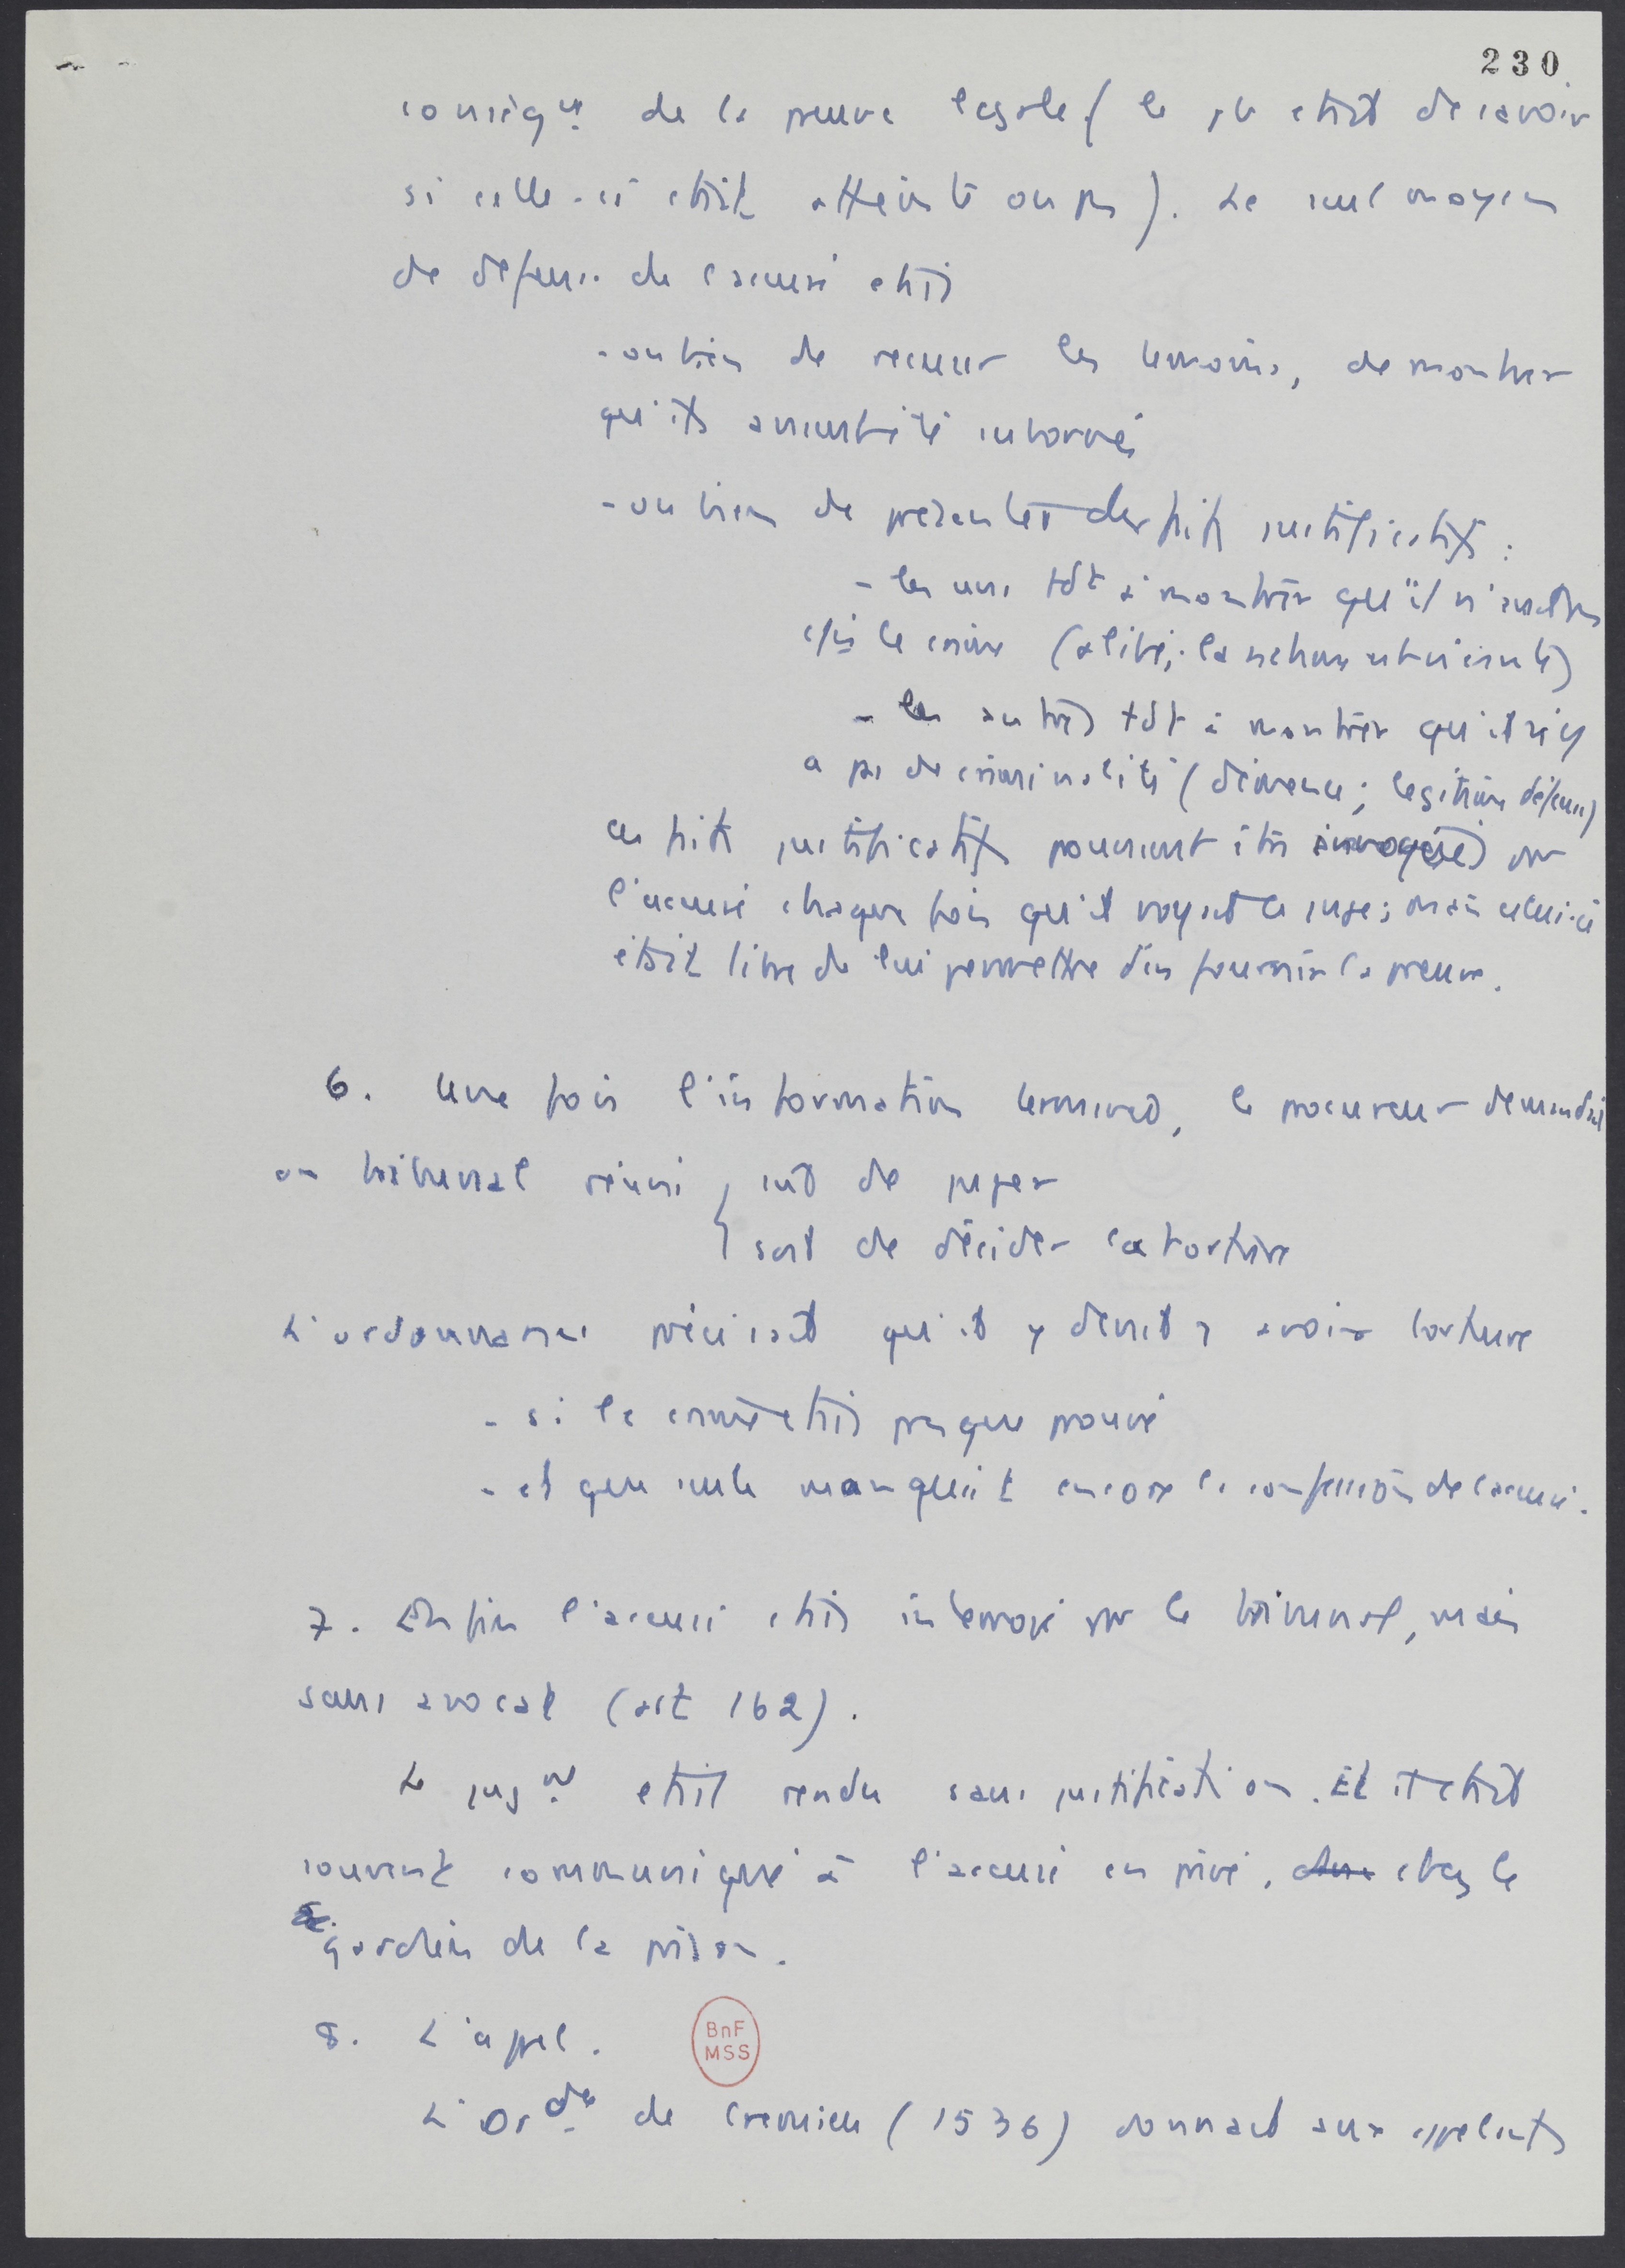 230
conséqu.ce de la preuve légale (le pb était de savoir
si celle-ci était atteinte ou pas). Le seul moyen
de défense de l'accusé était
- ou bien de récuser les témoins, de montrer
qu'ils avaient été subornés
- ou bien de présenter des faits justificatifs :
- les uns tdt à montrer qu'il n'avait pas
cjis le crime (alibi; la victime est vivante)
- les autres tdt à montrer qu'il n'y
a pas de criminalité (démence; légitime défense)
ces faits justificatifs pouvaient être invoqués par
l'accusé chaque fois qu'il voyait le juge; mais celui-ci
était libre de lui permettre d'en fournir la preuve.
6. Une fois l'information terminée, le procureur demandait
au tribunal réuni soit de juger
soit de décider la torture
L'ordonnance précisait qu'il y devait y avoir torture
- si le crime était presque prouvé
- et que seule manquait encore la confession de l'accusé.
7. Enfin l'accusé était interrogé par le tribunal, mais
sans avocat (art 162).
Le jug.nt était rendu sans justification. Et il était
souvent communiqué à l'accusé en privé, chez le
gardien de la prison.
8. L'appel.
BnF
MSS
L'Ord.ce de Cremieu (1536) donnait aux appelants